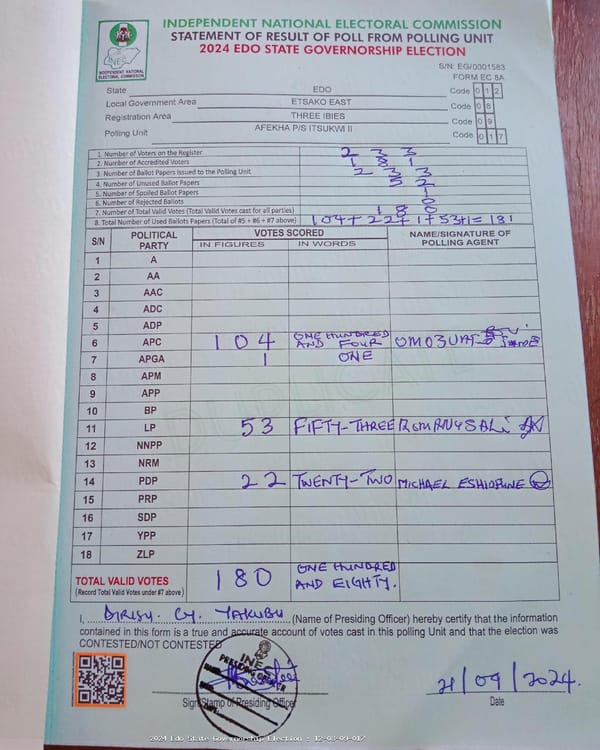 INDEPENDENT NATIONAL ELECTORAL COMMISSION
STATEMENT OF RESULT OF POLL FROM POLLING UNIT
2024 EDO STATE GOVERNORSHIP ELECTION
INDEPENDENT NATIONAL ELECTORAL COMMISSION
S/N: EG/0001583
FORM EC 8A
State EDO Code 0 1 2
Local Government Area ETSAKO EAST Code 0 8
Registration Area THREE IBIES Code 0 9
Polling Unit AFEKHA P/S ITSUKWI II Code 0 1 7
1. Number of Voters on the Register 2 3 3
2. Number of Accredited Voters 1 8 1
3. Number of Ballot Papers Issued to the Polling Unit 2 3 3
4. Number of Unused Ballot Papers 5 2
5. Number of Spoiled Ballot Papers 1
6. Number of Rejected Ballots 0
7. Number of Total Valid Votes (Total Valid Votes cast for all parties) 1 8 0
8. Total Number of Used Ballots Papers (Total of #5 + #6 + #7 above) 104+22+1+53+1=181
S/N POLITICAL PARTY VOTES SCORED NAME/SIGNATURE OF POLLING AGENT
IN FIGURES IN WORDS
1 A
2 AA
3 AAC
4 ADC
5 ADP
6 APC 104 ONE HUNDRED AND FOUR
7 APGA 1 ONE
8 APM
9 APP
10 BP
11 LP 53 FIFTY-THREE
12 NNPP
13 NRM
14 PDP 22 TWENTY-TWO MICHAEL
15 PRP
16 SDP
17 YPP
18 ZLP
TOTAL VALID VOTES 180 ONE HUNDRED AND EIGHTY.
(Record Total Valid Votes under #7 above)
I, YAKUBU (Name of Presiding Officer) hereby certify that the information
contained in this form is a true and accurate account of votes cast in this polling Unit and that the election was
CONTESTED/NOT CONTESTED
INE
PRESIDING OFFICER
Sign/Stamp of Presiding Officer
21/09/2024.
Date
2024 Edo State Governorship Election - 12-08-09-017